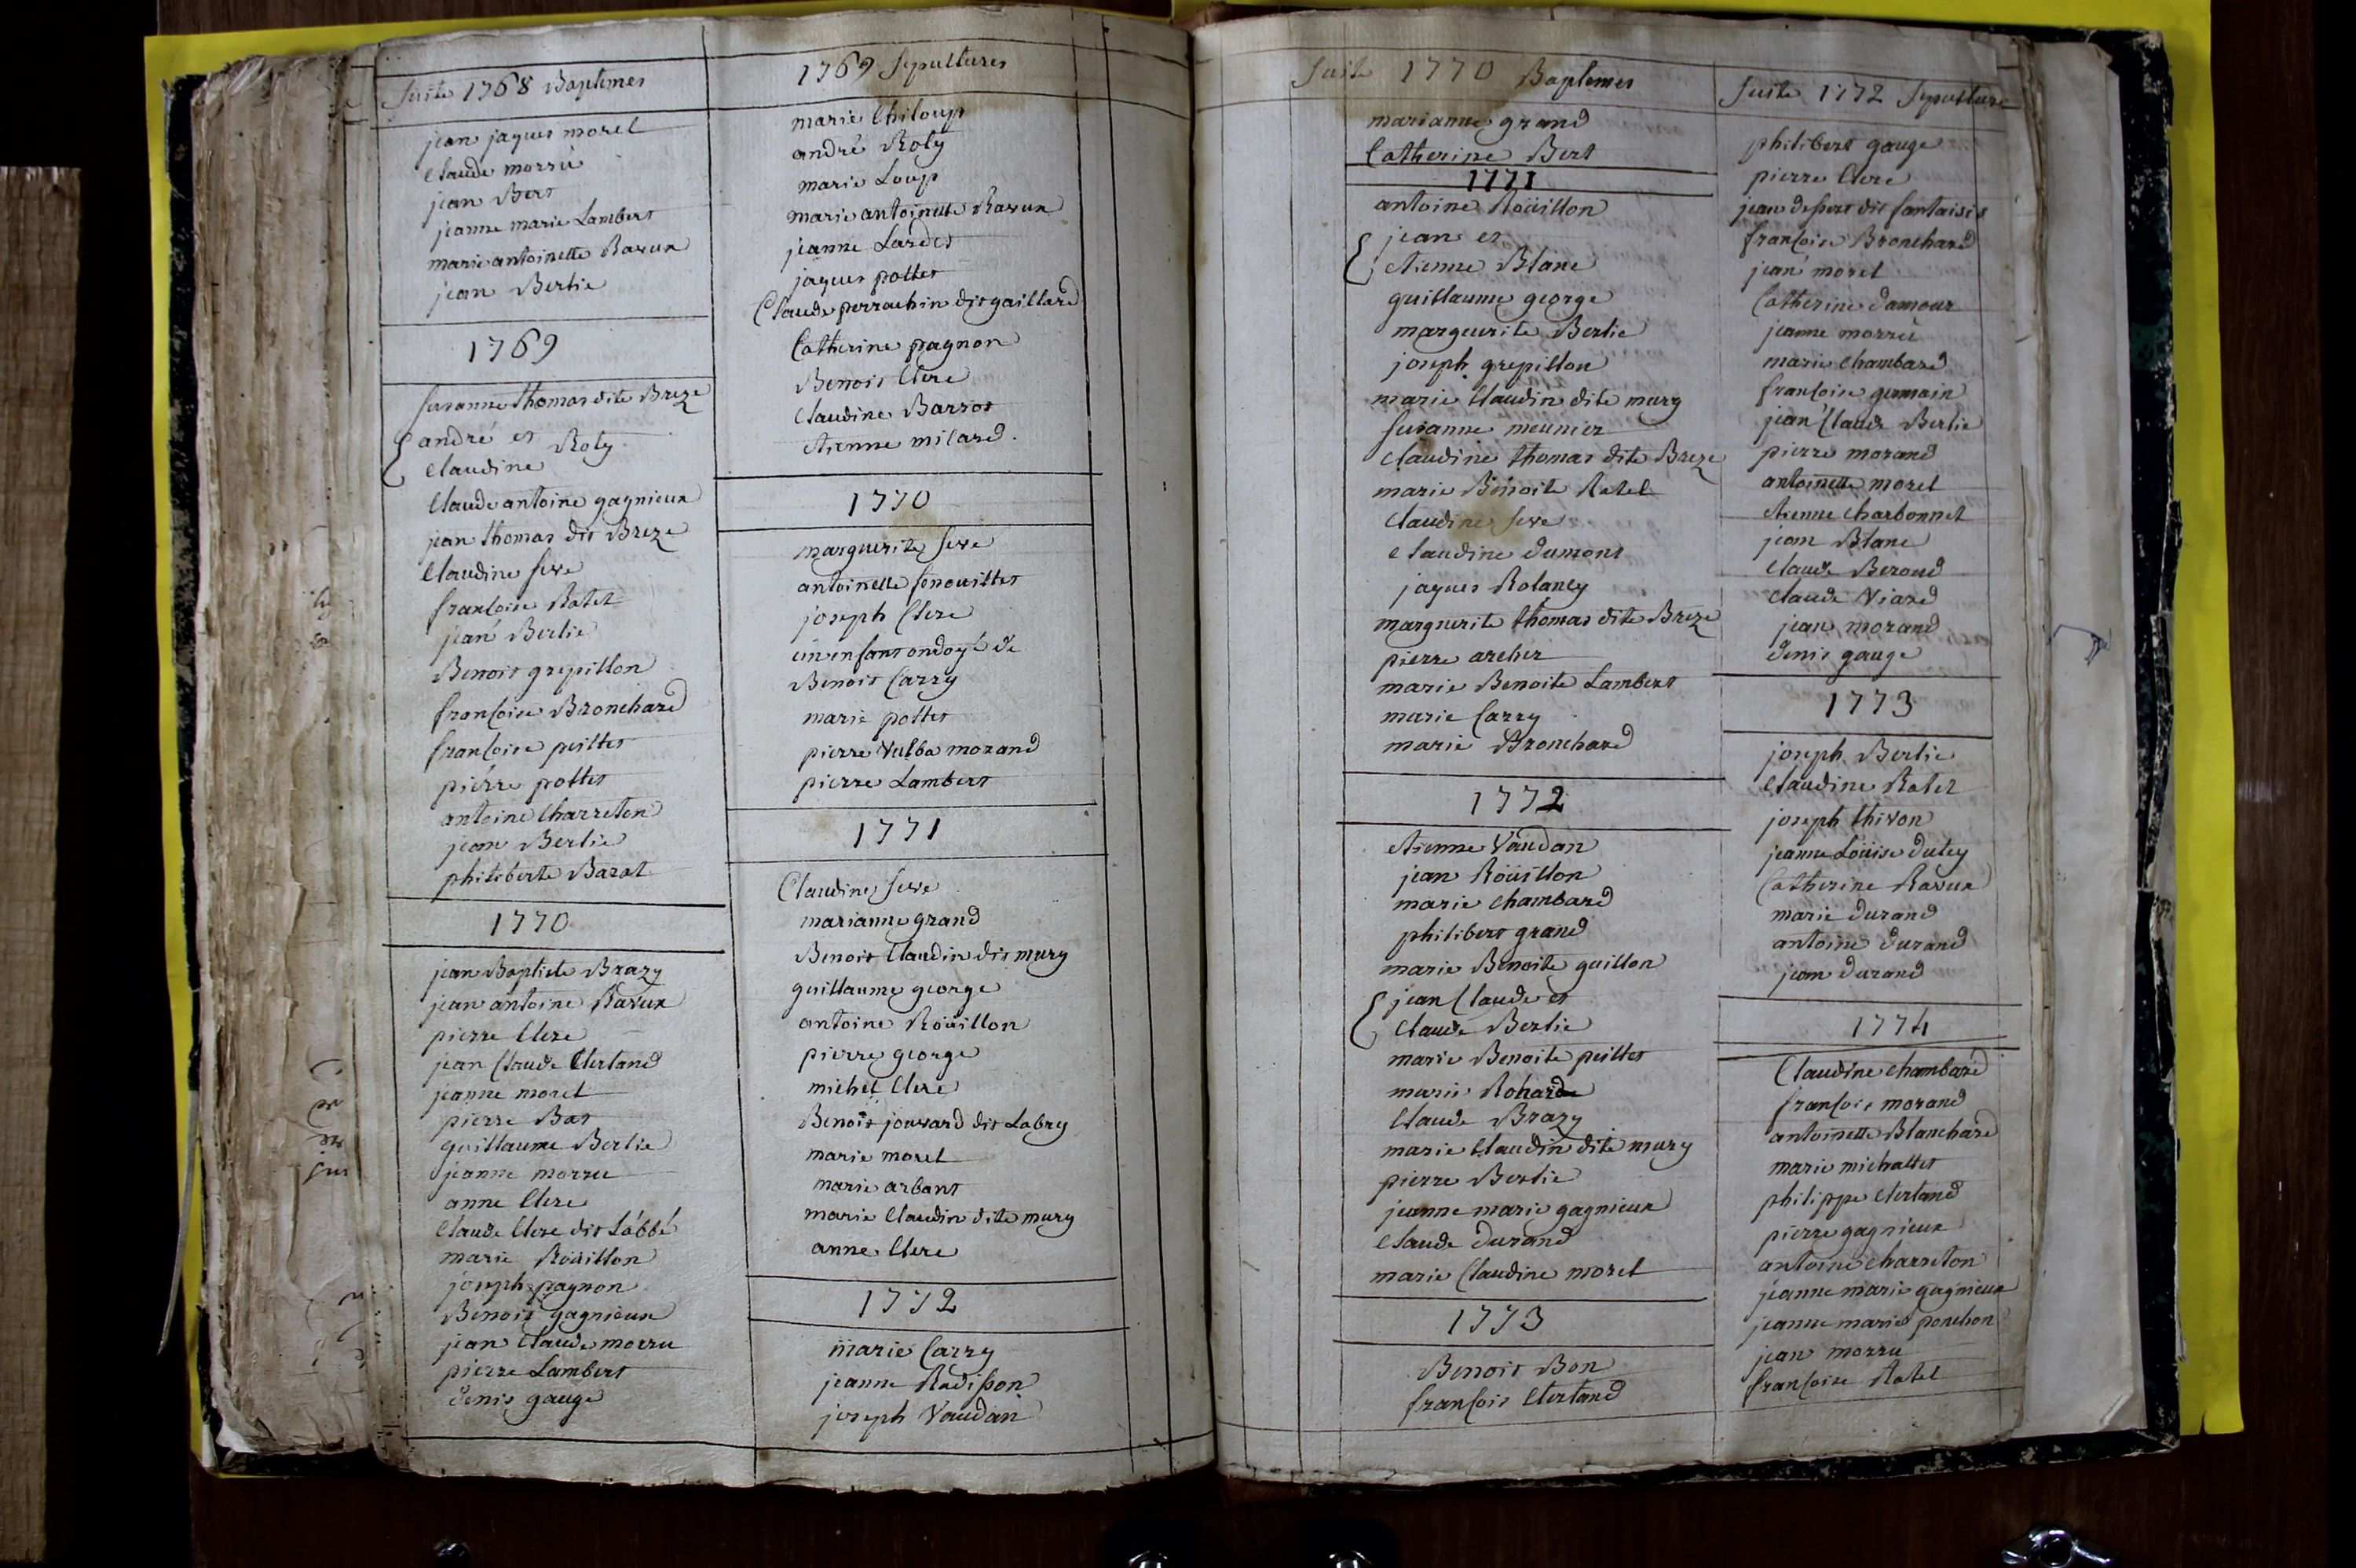 Suite 1768 Baptemes
jean jaques morel
Claude morru
jean Bert
jeanne marie Lambert
marie antoinette Ravux
jean Berlie
1769
Susanne thomas dite Breze
andré et Roly
Claudine
Claude antoine gagnieux
jean thomas dit Breze
Claudine Seve
francoise Ratel
jean Berlie
Benoit grepillon
francoise Bronchard
francoise peillet
pierre pollet
antoine Charreton
jean Berlie
philiberte Barat
1770
jean Baptiste Brazy
jean antoine Ravux
pierre Clere
jean Claude Clertand
jeanne morel
pierre Bas
guillaume Berlie
jeanne morru
anne Clere
Claude Clere dit Lábbé
marie Roüillon
joseph pagnon
Benoit gagnieux
jean Claude morru
pierre Lambert
denis gauge
1769 Sepultures
marie Chiloup
andré Roly
marie Loup
marie antoinette Ravux
jeanne Lardet
jaques pollet
Claude perrachin dit gaillard
Catherine pagnon
Benoit Clere
Claudine Barrot
etienne milard
1770
marguerite Seve
antoinette fenouillet
joseph Clere
un enfant ondoyé de
Benoit Carry
marie pollet
pierre Vulba morand
pierre Lambert
1771
Claudine Seve
marianne grand
Benoit Claudin dit mury
guillaume george
antoine Roüillon
pierre george
michel Clere
Benoit jouvard dit Labry
marie morel
marie arbant
marie Claudin dite mury
anne Clere
1772
marie Carry
jeanne Radisson
joseph Vaudan
Suite 1770 Baptemes
marianne grand
Catherine Bert
1771
antoine Roüillon
jean et
etienne Blanc
guillaume george
margeurite Berlie
joseph grepillon
marie Claudin dite mury
susanne meunier
Claudine thomas dite Breze
marie Benoite Ratel
Claudine Seve
Claudine dumont
jaques Rolancy
marguerite thomas dite Breze
pierre archer
marie Benoite Lambert
marie Carry
marie Bronchard
1772
etienne Vaudan
jean Roüillon
marie Chambard
philibert grand
marie Benoite guillon
jean Claude et
Claude Berlie
marie Benoite peillet
marie Rohard
Claude Brazy
marie Claudin dite mury
pierre Berlie
jeanne marie gagnieux
Claude durand
marie Claudine morel
1773
Benoit Bon
francois Clertand
Suite 1772 Sepulture
philibert gauge
pierre Clere
jean dessert dit fantaisie
francoise Bronchard
jean morel
Catherine damour
jeanne morru
marie Chambard
francoise germain
jean Claude Berlie
pierre morand
antoinette morel
etienne Charbonnet
jean Blanc
Claude Beroud
Claude Viard
jean morand
denis gauge
1773
joseph Berlie
Claudine Ratel
joseph thivon
jeanne Loüise duley
Catherine Ravux
marie durand
antoine durand
jean durand
1774
Claudine Chambard
francois morand
antoinette Blanchard
marie michallet
philippe Clertand
pierre gagnieux
antoine Charreton
jeanne marie gagnieux
jeanne marie ponchon
jean morru
francoise Ratel